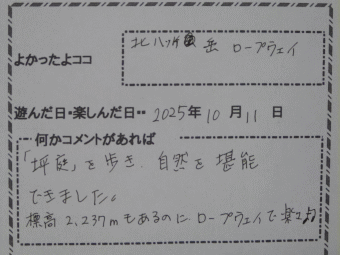 北八ヶ岳 ロープウェイ
よかったよココ
遊んだ日・楽しんだ日・・ 2025年 10月 11日
何かコメントがあれば
「坪庭」を歩き、自然を堪能
できました。
標高 2,237mもあるのに ロープウェイで楽々♫